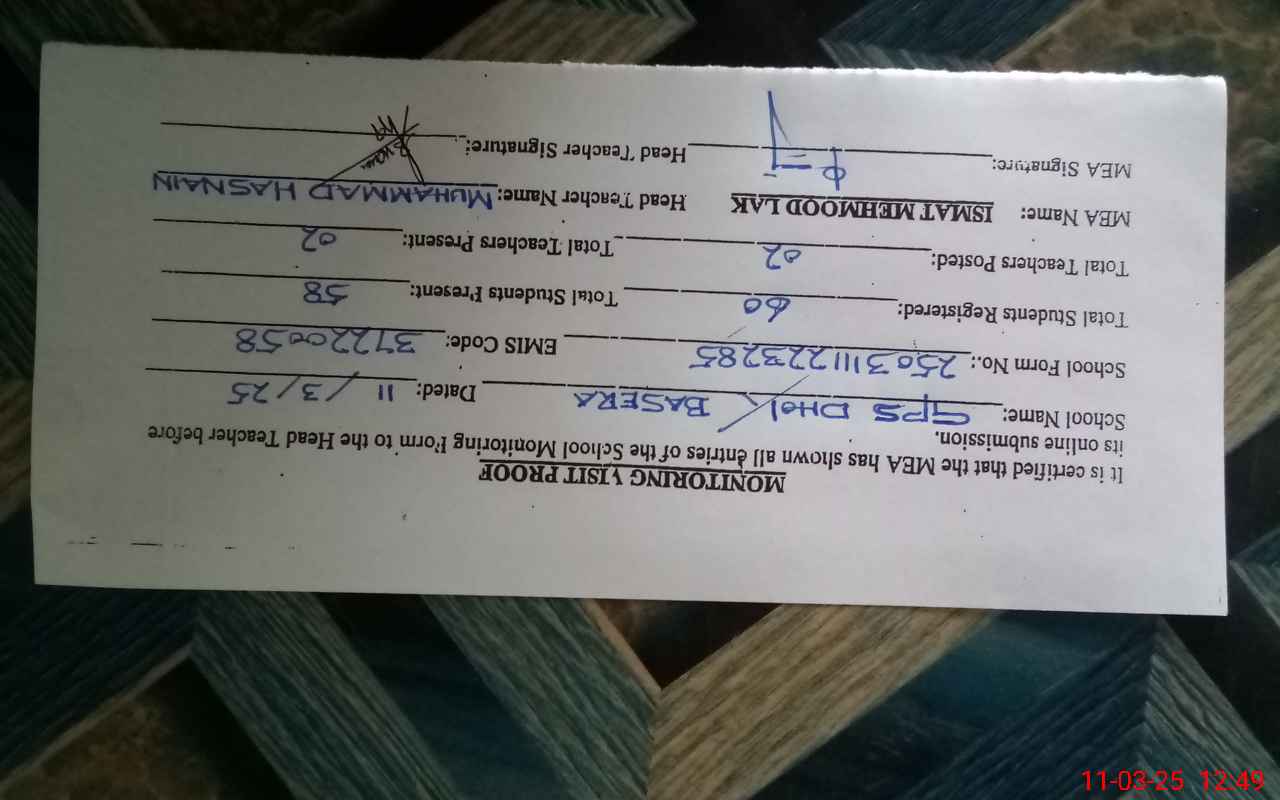 MONITORING VISIT PROOF
It is certified that the MEA has shown all entries of the School Monitoring Form to the Head Teacher before
its online submission.
School Name: GPS DHOK BASERA Dated: 11/3/25
School Form No.: 2503111223285 EMIS Code: 37220058
Total Students Registered: 60 Total Students Present: 58
Total Teachers Posted: 02 Total Teachers Present: 02
MEA Name: ISMAT MEHMOOD LAK Head Teacher Name: MUHAMMAD HASNAIN
MEA Signature: Head Teacher Signature:
11-03-25 12:49